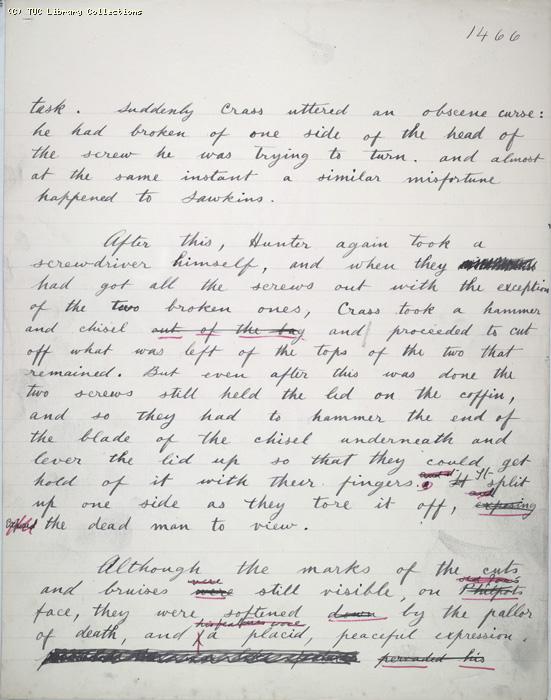 (C) TUC Library Collections
1466
task. Suddenly Crass uttered an obscene curse:
he had broken of one side of the head of
the screw he was trying to turn. and almost
at the same instant a similar misfortune
happened to Sawkins.
After this, Hunter again took a
screwdriver himself, and when they
had got all the screws out with the exception
of the two broken ones, Crass took a hammer
and chisel out of the bag and proceeded to cut
off what was left of the tops of the two that
remained. But even after this was done the
two screws still held the lid on the coffin,
and so they had to hammer the end of
the blade of the chisel underneath and
lever the lid up so that they could get
hold of it with their fingers. It split
up one side as they tore it off, exposing
the dead man to view.
Although the marks of the cuts
and bruises were still visible, on Philpots
face, they were softened down by the pallor
of death, and a placid, peaceful expression.
pervaded his